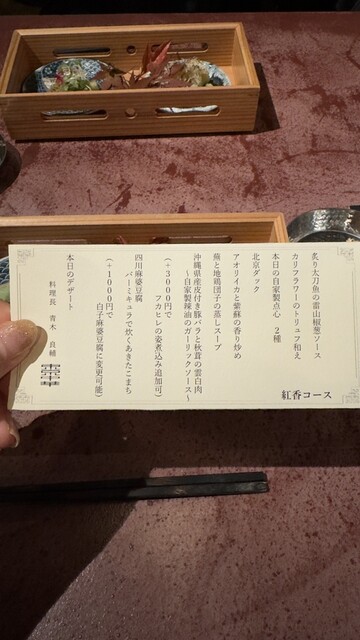 紅香コース
炙り太刀魚の雷山椒葱ソース
カリフラワーのトリュフ和え
本日の自家製点心 2種
北京ダック
アオリイカと紫蘇の香り炒め
蕪と地鶏団子の蒸しスープ
沖縄県産皮付き豚バラと秋茸の雲白肉
～自家製辣油のガーリックソース～
(+3000円で
フカヒレの姿煮込み追加可)
四川麻婆豆腐
バーミキュラで炊くあきたこまち
(+1000円で
白子麻婆豆腐に変更可能)
本日のデザート
料理長 青木 良輔